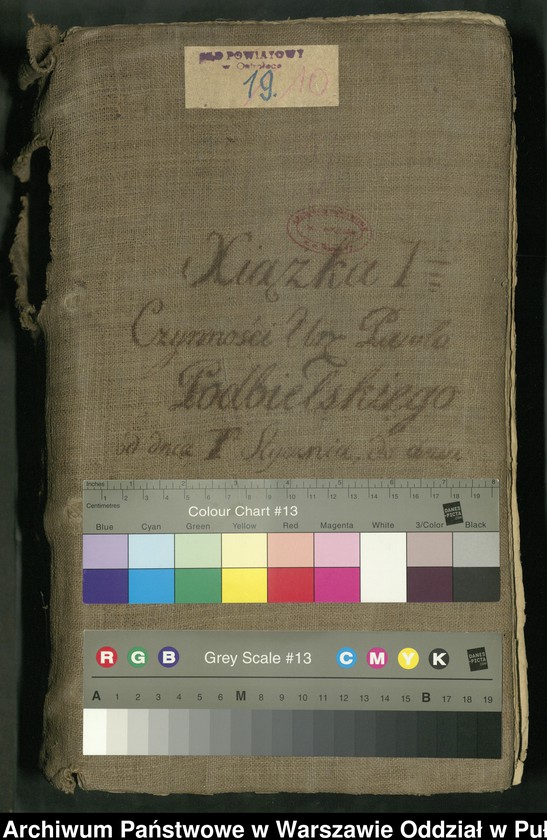 SĄD POWIATOWY
19. 10
Xiązka I
Czynności Urz Pawła
Podbielskiego
od dnia I Stycznia, do dnia
Inches 1 2 3 4 5 6 7 8
Centimetres 1 2 3 4 5 6 7 8 9 10 11 12 13 14 15 16 17 18 19
Colour Chart #13
Blue Cyan Green Yellow Red Magenta White 3/Color Black
DANES PICTA
R G B Grey Scale #13 C M Y K
DANES PICTA
A 1 2 3 4 5 6 M 8 9 10 11 12 13 14 15 B 17 18 19
Archiwum Państwowe w Warszawie Oddział w Puł